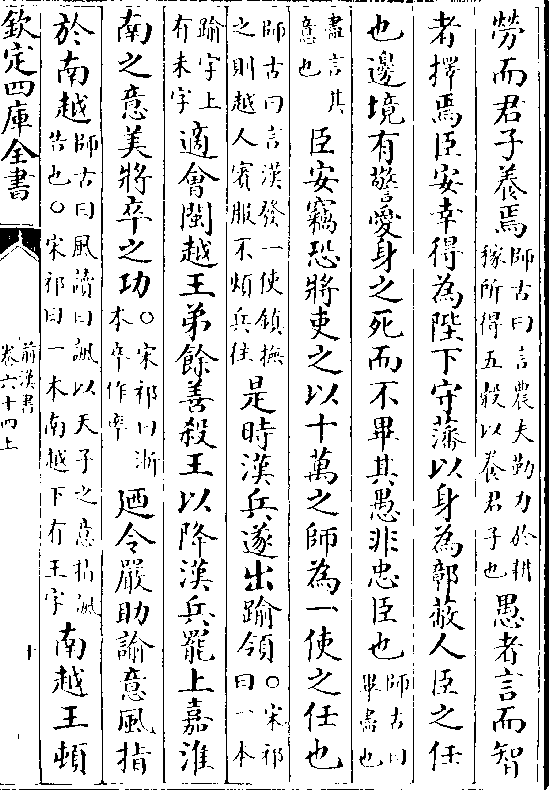 勞而君子養焉師古曰言農夫勤力於耕稼所得五穀以養君子也愚者言而智
者擇焉臣安幸得為陛下守藩以身為鄣蔽人臣之任
也邊境有警愛身之死而不畢其愚非忠臣也師古曰畢盡也
盡言其意也臣安竊恐將吏之以十萬之師為一使之任也
師古曰言漢發一使鎮撫之則越人賓服不煩兵往是時漢兵遂出踰領○宋祁曰一本
踰字上有未字適會閩越王弟餘善殺王以降漢兵罷上嘉淮
南之意美將卒之功○宋祁曰浙本卒作率廼令嚴助諭意風指
於南越師古曰風讀曰諷以天子之意指諷告也○宋祁曰一本南越下有王字南越王頓
欽定四庫全書
前漢書
卷六十四上
十